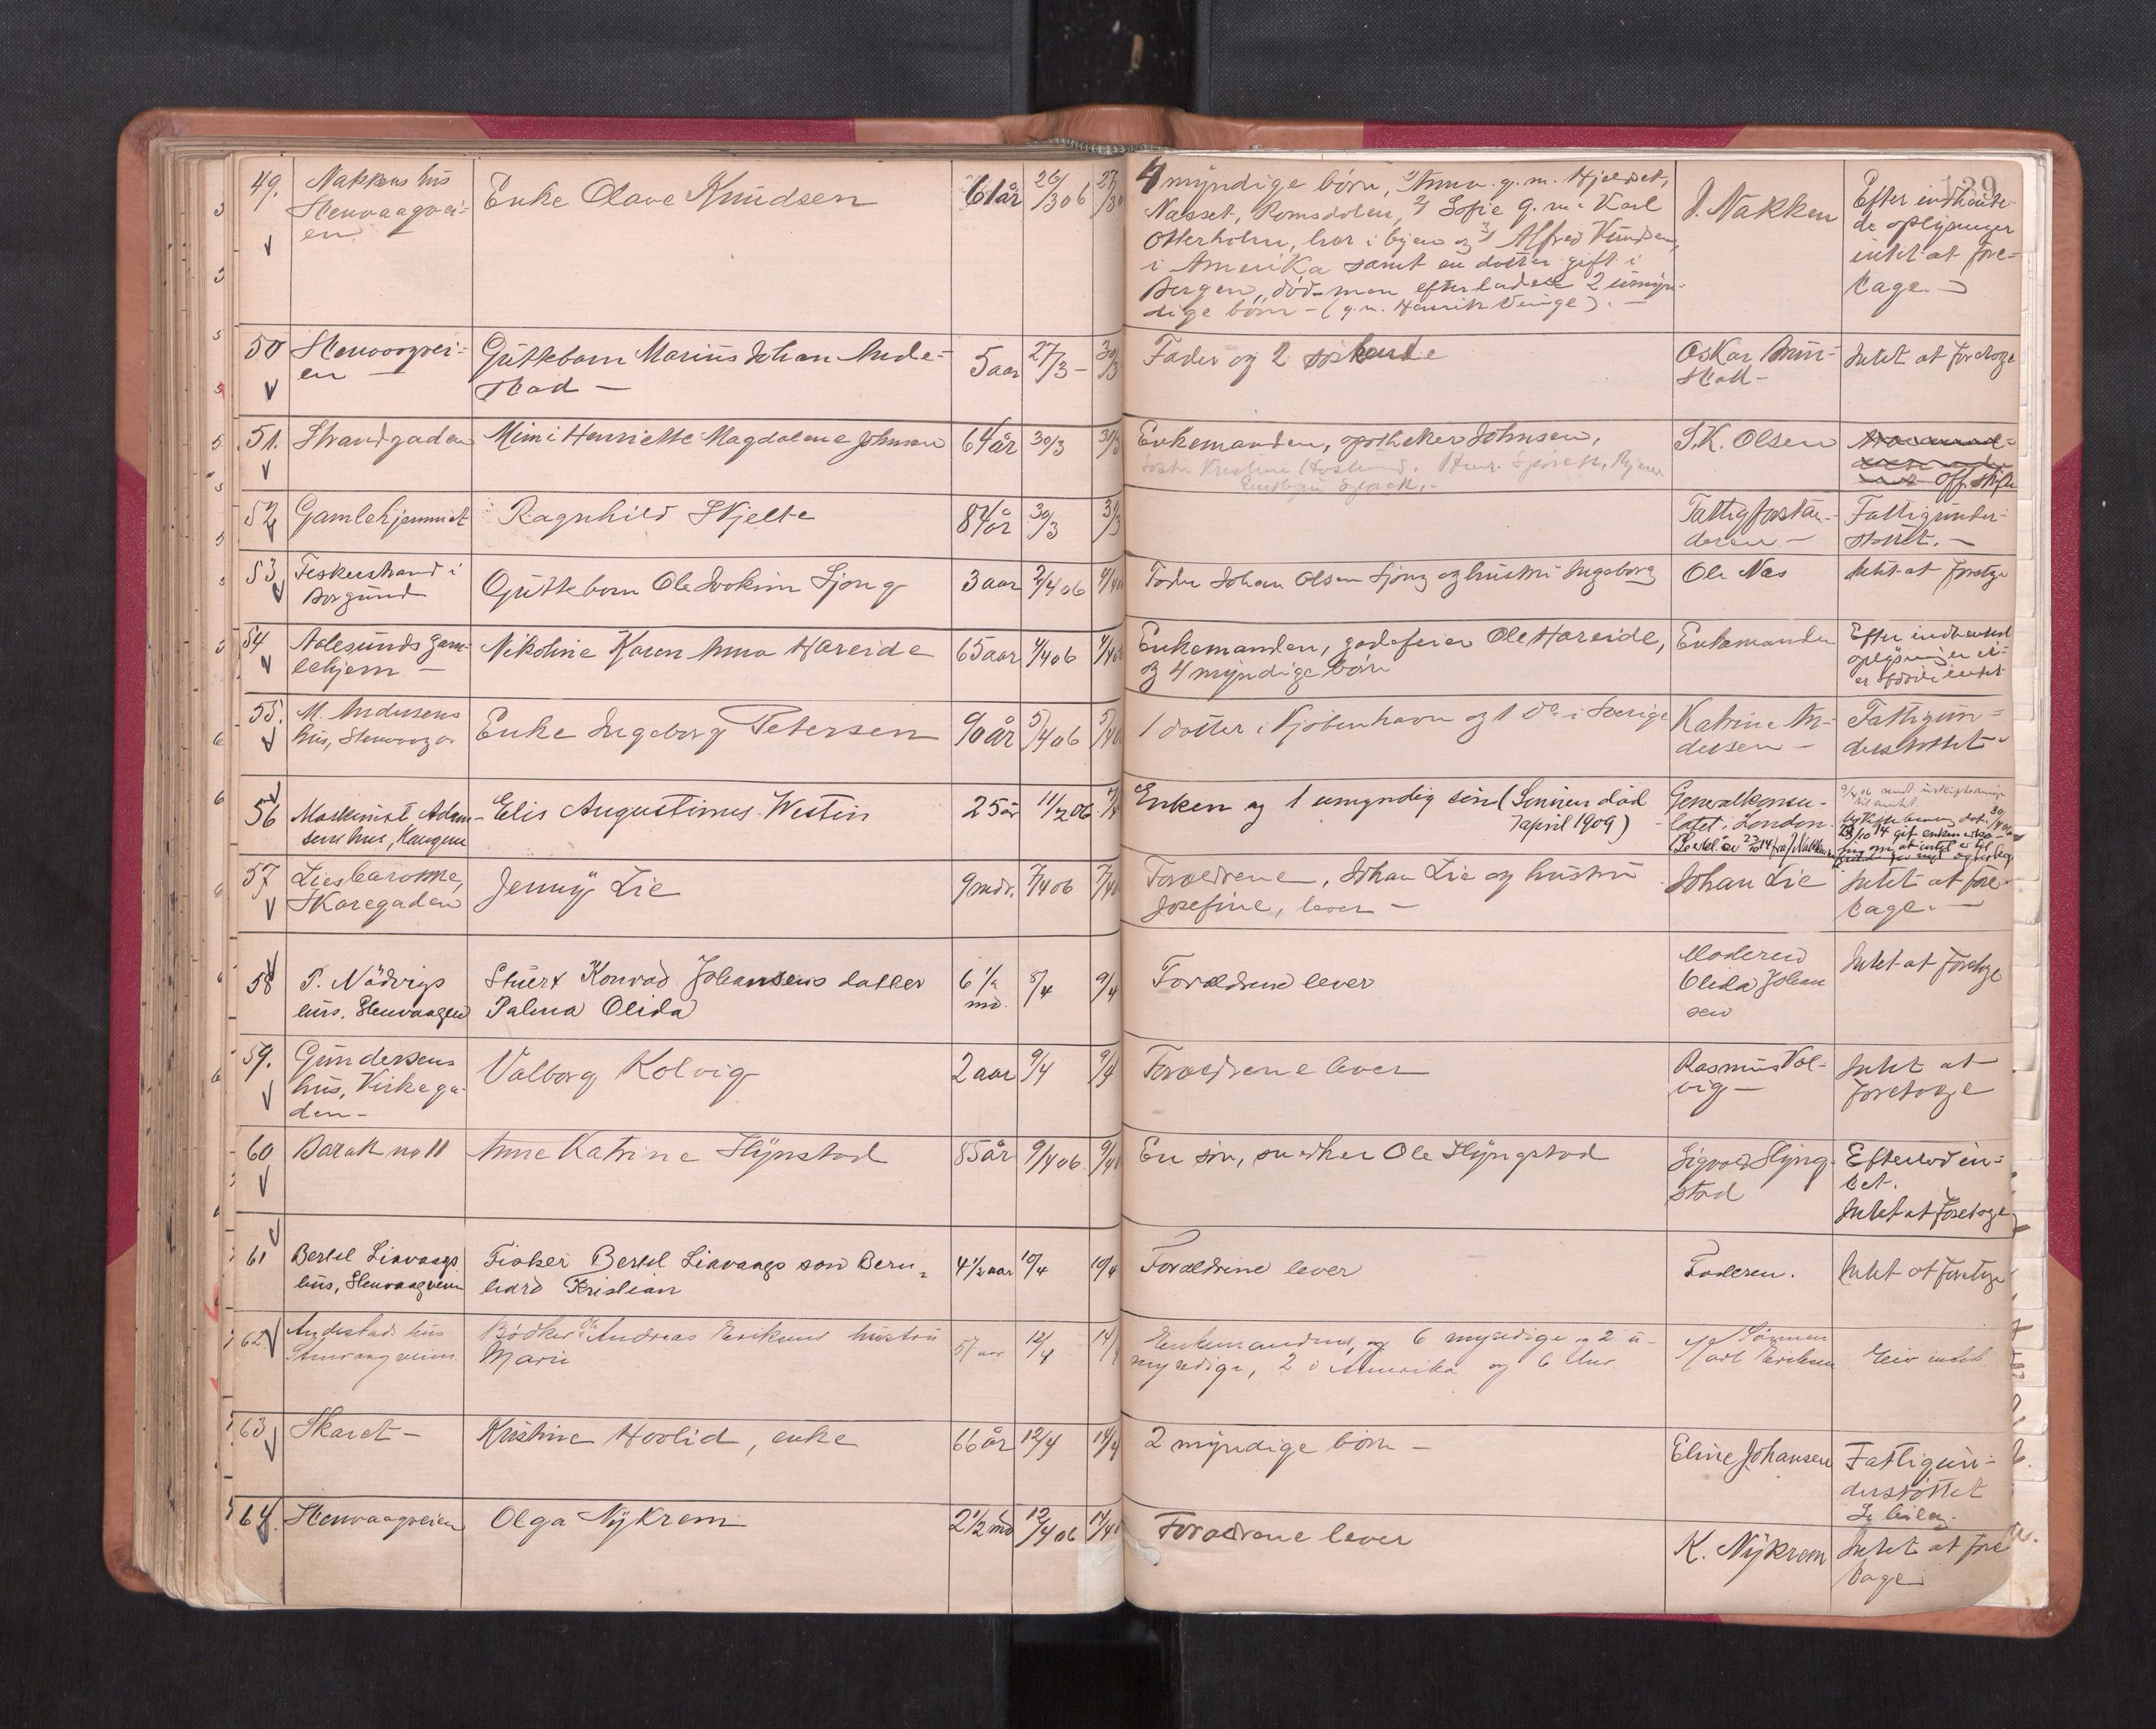 139
49.
Nakkens hus
Stenvaagvei-
en
Enke Olave Knudsen
61 år
26/3 06
27/3 0
4 myndige børn, 1) Anna g. m. Hjelset,
Nesset, Romsdalen, 2) Sofie g. m. Karl
Otterholm, her i byen og 3) Alfred Knudsen,
i Amerika samt en datter gift i
Bergen, død man efterlader 2 umyn-
dige børn - (g. m. Henrik Vinge). -
J. Nakken
Efter indhente-
de oplysninger
intet at fore-
tage. -
50
Stenvaagvei-
en -
Guttebarn Marius Johan Ande-
stad -
5 aar
27/3 -
30/3
Fader og 2 søskende
Oskar
Intet at foretage
51.
Strandgaden
Mimi Henriette Magdalene Johnsen
64 år
30/3
30/3
Enkemanden, apotheker Johnsen,
S. K. Olsen
off. skifte
52
Gamlehjemmet
Ragnhild Skjelte
84 år
30/3
31/3
Fattigforstan-
deren -
Fattigunder-
støttet. -
53
Fiskerstrand i
Borgund
Guttebarn Ole Joakim Ljong
3 aar
2/4 06
4/4 0
Fader Johan Olsen Ljong og hustru Ingeborg
Ole Nes
Intet at foretage
54
Aalesunds gam-
lehjem -
Nikoline Karen Anna Hareide
65 aar
4/4 06
4/4 06
Enkemanden, gadefeier Ole Hareide,
og 4 myndige børn
Enkemanden
Efter indhentede
oplysninger
intet
55.
M. Andersens
hus, Stenvaagv.
Enke Ingeborg Petersen
90 år
5/4 06
5/4 0
1 datter i Kjøbenhavn og 1 do i Sverige
Katrine An-
dersen -
Fattigun-
derstøttet -
56
Maskinist Adam-
sens hus, Haugen
Elis Augustinus Westin
25 år
11/2 06
Enken og 1 umyndig søn (Sønnen død
7 april 1909)
Generalkonsu-
latet i London.
57
Lies barakke,
Skaregaden
Jenny Lie
9 mdr.
7/4 06
7/4 0
Forældrene, Johan Lie og hustru
Josefine, lever -
Johan Lie
Intet at fore-
tage. -
58
P. Nådvigs
hus. Stenvaagen
Stuert Konrad Johansens datter
Palma Olida
6 1/2
md.
8/4
9/4
Forældrene lever
Moderen
Olida Johan
sen
Intet at foretage
59.
Gundersens
hus, Kirkega-
den -
Valborg Kolvig
2 aar
9/4
9/4
Forældrene lever
Rasmus Kol-
vig -
Intet at
foretage
60
Barak no 11
Anne Katrine Slyngstad
85 år
9/4 06
9/4 0
En søn, snedker Ole Slyngstad
Sigvald Slyng-
stad
Efterlod in-
tet.
Intet at foretage
61
Bertel Liavaags
hus, Stenvaagveien
Fisker Bertel Liavaags søn Bern-
hard Kristian
4 1/2 aar
10/4
10/4
Forældrene lever
Faderen.
Intet at foretage
62
Andestads hus
Stenvaagveien
Bødker Andreas Eriksens hustru
Marie
57 aar
12/4
14/4
Enkemanden, og 6 myndige og 2 u-
myndige, 2 i Amerika og 6 her
Sønnen
Karl Eriksen
Eier intet
63
Skaret -
Kristine Hovlid, enke
66 år
12/4
14/4
2 myndige børn -
Eline Johansen
Fattigun-
derstøttet
Se bilag.
64.
Stenvaagveien
Olga Nykrem
2 1/2 md
12/4 06
14/4 0
Forældrene lever
K. Nykrem
Intet at fore
tage